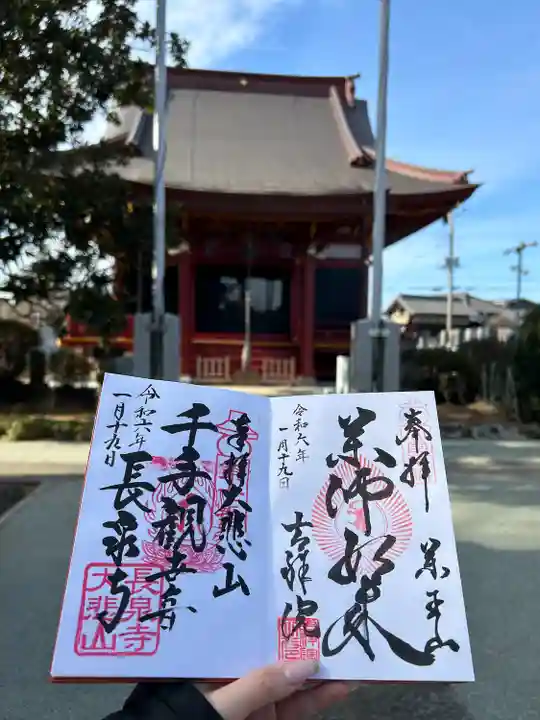 奉拝
薬王山
薬師如来
吉祥院
令和六年
一月十九日
奉拝大悲山
千手観世音
長泉寺
令和六年
一月十九日
長泉寺
大悲山